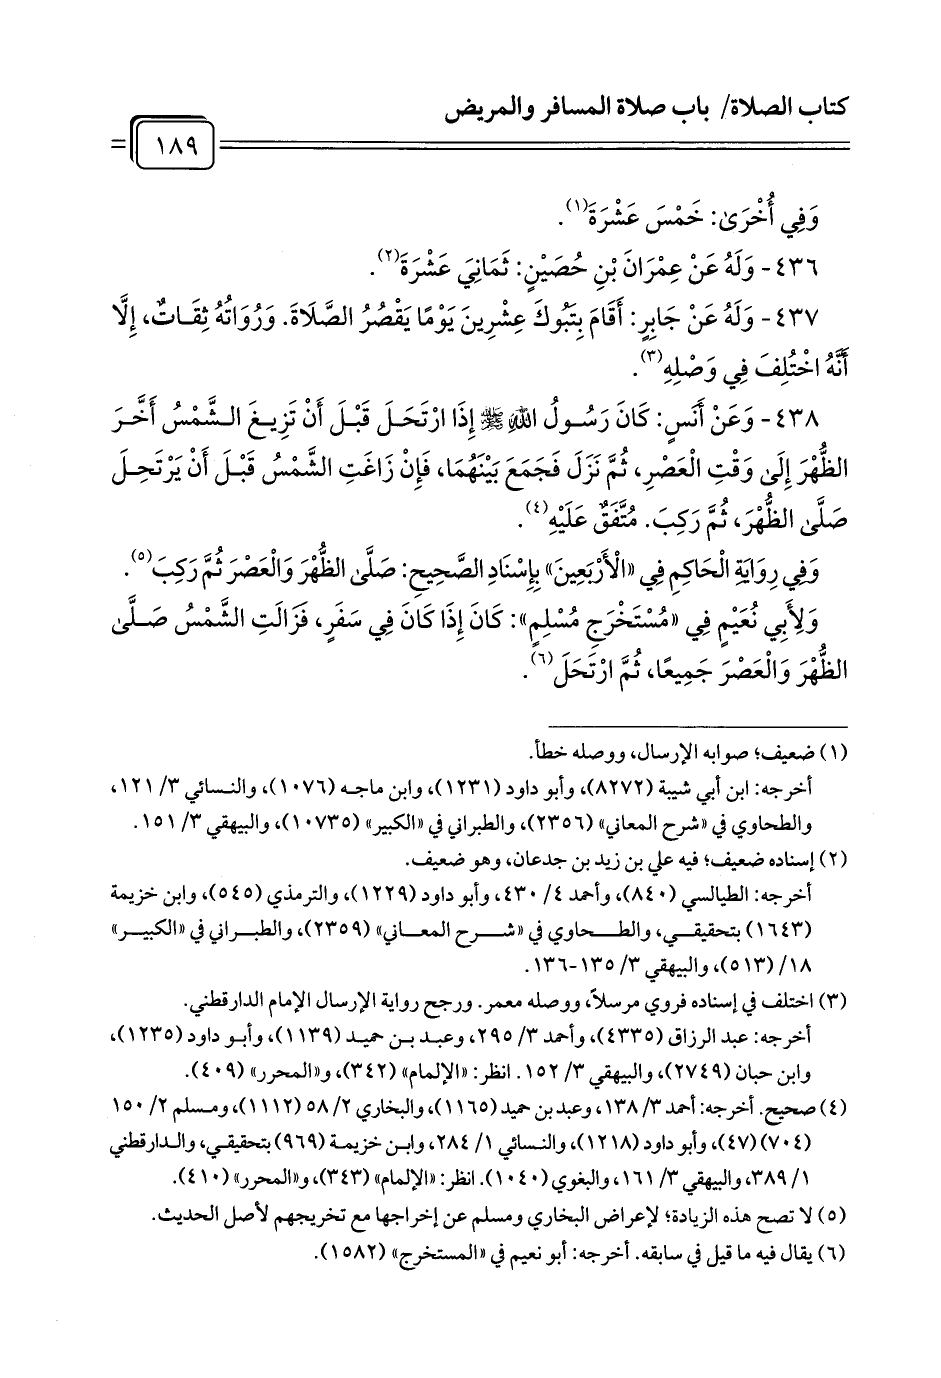 كتاب الصلاة/ باب صلاة المسافر والمريض
١٨٩
وَفِي أُخْرَىٰ: خَمْسَ عَشْرَةَ(١).
٤٣٦- وَلَهُ عَنْ عِمْرَانَ بْنِ حُصَيْنٍ: ثَمَانِيَ عَشْرَةَ(٢).
٤٣٧- وَلَهُ عَنْ جَابِرٍ: أَقَامَ بِتَبُوكَ عِشْرِينَ يَوْمًا يَقْصُرُ الصَّلَاةَ. وَرُوَاتُهُ ثِقَاتٌ، إِلَّا
أَنَّهُ اخْتُلِفَ فِي وَصْلِهِ(٣).
٤٣٨- وَعَنْ أَنَسٍ: كَانَ رَسُولُ اللهِ ﷺ إِذَا ارْتَحَلَ قَبْلَ أَنْ تَزِيغَ الشَّمْسُ أَخَّرَ
الظُّهْرَ إِلَىٰ وَقْتِ الْعَصْرِ، ثُمَّ نَزَلَ فَجَمَعَ بَيْنَهُمَا، فَإِنْ زَاغَتِ الشَّمْسُ قَبْلَ أَنْ يَرْتَحِلَ
صَلَّىٰ الظُّهْرَ، ثُمَّ رَكِبَ. مُتَّفَقٌ عَلَيْهِ(٤).
وَفِي رِوَايَةِ الْحَاكِمِ فِي «الْأَرْبَعِينَ» بِإِسْنَادِ الصَّحِيحِ: صَلَّىٰ الظُّهْرَ وَالْعَصْرَ ثُمَّ رَكِبَ(٥).
وَلِأَبِي نُعَيْمٍ فِي «مُسْتَخْرَجِ مُسْلِمٍ»: كَانَ إِذَا كَانَ فِي سَفَرٍ، فَزَالَتِ الشَّمْسُ صَلَّىٰ
الظُّهْرَ وَالْعَصْرَ جَمِيعًا، ثُمَّ ارْتَحَلَ(٦).
(١) ضعيف؛ صوابه الإرسال، ووصله خطأ.
أخرجه: ابن أبي شيبة (٨٢٧٢)، وأبو داود (١٢٣١)، وابن ماجه (١٠٧٦)، والنسائي ٣/ ١٢١،
والطحاوي في «شرح المعاني» (٢٣٥٦)، والطبراني في «الكبير» (١٠٧٣٥)، والبيهقي ٣/ ١٥١.
(٢) إسناده ضعيف؛ فيه علي بن زيد بن جدعان، وهو ضعيف.
أخرجه: الطيالسي (٨٤٠)، وأحمد ٤/ ٤٣٠، وأبو داود (١٢٢٩)، والترمذي (٥٤٥)، وابن خزيمة
(١٦٤٣) بتحقيقي، والطحاوي في «شرح المعاني» (٢٣٥٩)، والطبراني في «الكبير»
١٨/ (٥١٣)، والبيهقي ٣/ ١٣٥-١٣٦.
(٣) اختلف في إسناده فروي مرسلاً، ووصله معمر. ورجح رواية الإرسال الإمام الدارقطني.
أخرجه: عبد الرزاق (٤٣٣٥)، وأحمد ٣/ ٢٩٥، وعبد بن حميد (١١٣٩)، وأبو داود (١٢٣٥)،
وابن حبان (٢٧٤٩)، والبيهقي ٣/ ١٥٢. انظر: «الإلمام» (٣٤٢)، و«المحرر» (٤٠٩).
(٤) صحيح. أخرجه: أحمد ٣/ ١٣٨، وعبد بن حميد (١١٦٥)، والبخاري ٢/ ٥٨ (١١١٢)، ومسلم ٢/ ١٥٠
(٧٠٤) (٤٧)، وأبو داود (١٢١٨)، والنسائي ١/ ٢٨٤، وابن خزيمة (٩٦٩) بتحقيقي، والدارقطني
١/ ٣٨٩، والبيهقي ٣/ ١٦١، والبغوي (١٠٤٠). انظر: «الإلمام» (٣٤٣)، و«المحرر» (٤١٠).
(٥) لا تصح هذه الزيادة؛ لإعراض البخاري ومسلم عن إخراجها مع تخريجهم لأصل الحديث.
(٦) يقال فيه ما قيل في سابقه. أخرجه: أبو نعيم في «المستخرج» (١٥٨٢).